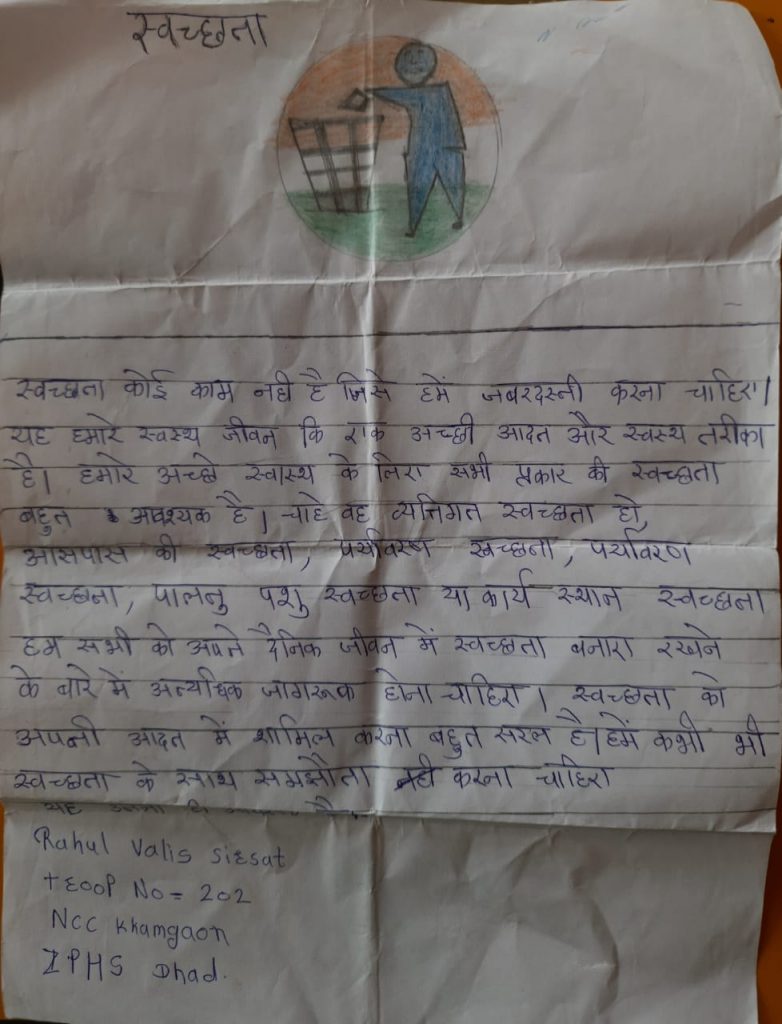 स्वच्छता
स्वच्छता कोई काम नही है जिसे हमें जबरदस्ती करना चाहिए।
यह हमारे स्वस्थ जीवन कि एक अच्छी आदत और स्वस्थ तरीका
है। हमारे अच्छे स्वास्थ के लिए सभी प्रकार की स्वच्छता
बहुत आवश्यक है। चाहे वह व्यत्तिगत स्वच्छता हो,
आसपास की स्वच्छता, पर्यावरण स्वच्छता, पर्यावरण
स्वच्छता, पालतु पशु स्वच्छता या कार्य स्थान स्वच्छता
हम सभी को अपने दैनिक जीवन में स्वच्छता बनाए रखने
के बारे में अत्यधिक जागरूक होना चाहिए। स्वच्छता को
अपनी आदत में शामिल करना बहुत सरल है। हमें कभी भी
स्वच्छता के साथ समझौता नही करना चाहिए
यह
Rahul Valis Sirsat
troop No = 202
NCC Khamgaon
ZPHS Dhad.